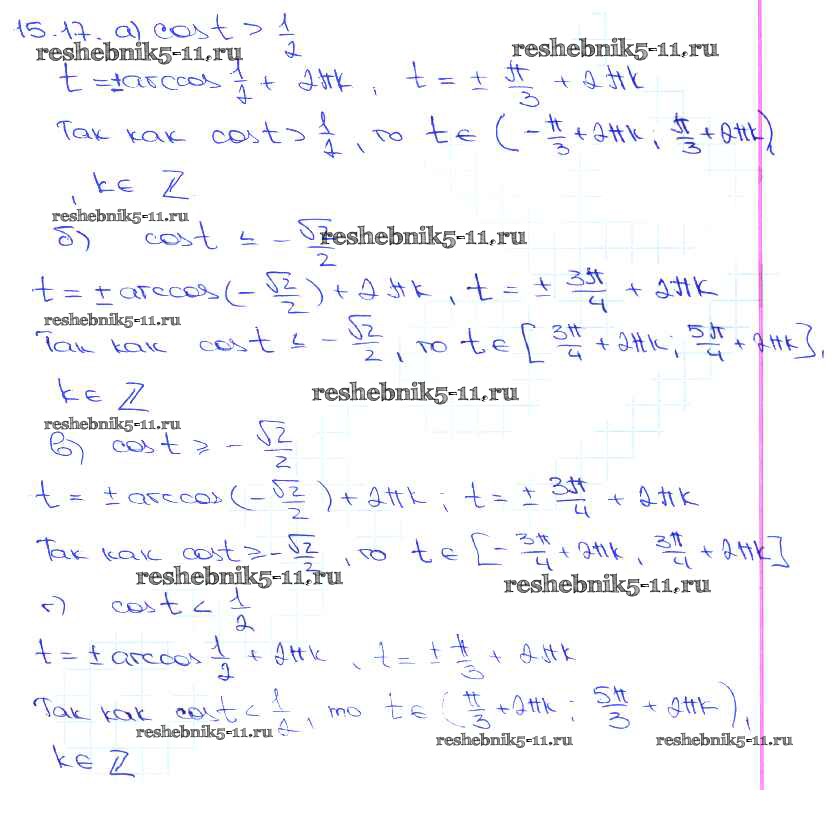 15.17. а) cos t > 1/2
reshebnik5-11.ru reshebnik5-11.ru
t = ± arccos 1/2 + 2πk, t = ± π/3 + 2πk
Так как cos t > 1/2, то t ∈ (-π/3 + 2πk; π/3 + 2πk),
, k ∈ ℤ
reshebnik5-11.ru
б) cos t ≤ -√2/2 reshebnik5-11.ru
t = ± arccos(-√2/2) + 2πk, t = ± 3π/4 + 2πk
reshebnik5-11.ru
Так как cos t ≤ -√2/2, то t ∈ [3π/4 + 2πk; 5π/4 + 2πk],
k ∈ ℤ reshebnik5-11.ru
reshebnik5-11.ru
в) cos t ≥ -√2/2
t = ± arccos(-√2/2) + 2πk; t = ± 3π/4 + 2πk
Так как cos t ≥ -√2/2, то t ∈ [-3π/4 + 2πk, 3π/4 + 2πk]
reshebnik5-11.ru reshebnik5-11.ru
г) cos t < 1/2
t = ± arccos 1/2 + 2πk, t = ± π/3 + 2πk
Так как cos t < 1/2, то t ∈ (π/3 + 2πk; 5π/3 + 2πk),
reshebnik5-11.ru reshebnik5-11.ru reshebnik5-11.ru
k ∈ ℤ